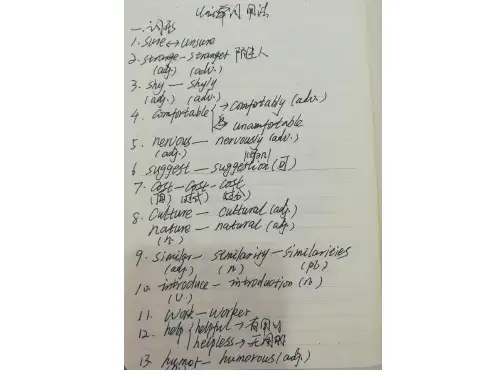 一.词形
1. sure ↔ unsure
2. strange - stranger 陌生人
(adj.) (adv.)
3. shy — shyly
(adj.) (adv.)
4. comfortable → comfortably (adv.)
unamfortable
5. nervous — nervously (adv.)
(adj.)
6 suggest — suggestion (可)
7. Cost - Cost - cost
8. Culture — cultural (adj.)
nature — natural (adj.)
(n.)
9. Similar - similarity - similarities
(adj.) (n.) (pl.)
10. introduce — introduction (n.)
(v.)
11. Work - Worker
12. help helpful → 有用的
helpless → 无用的
13. humor - humorous (adj.)